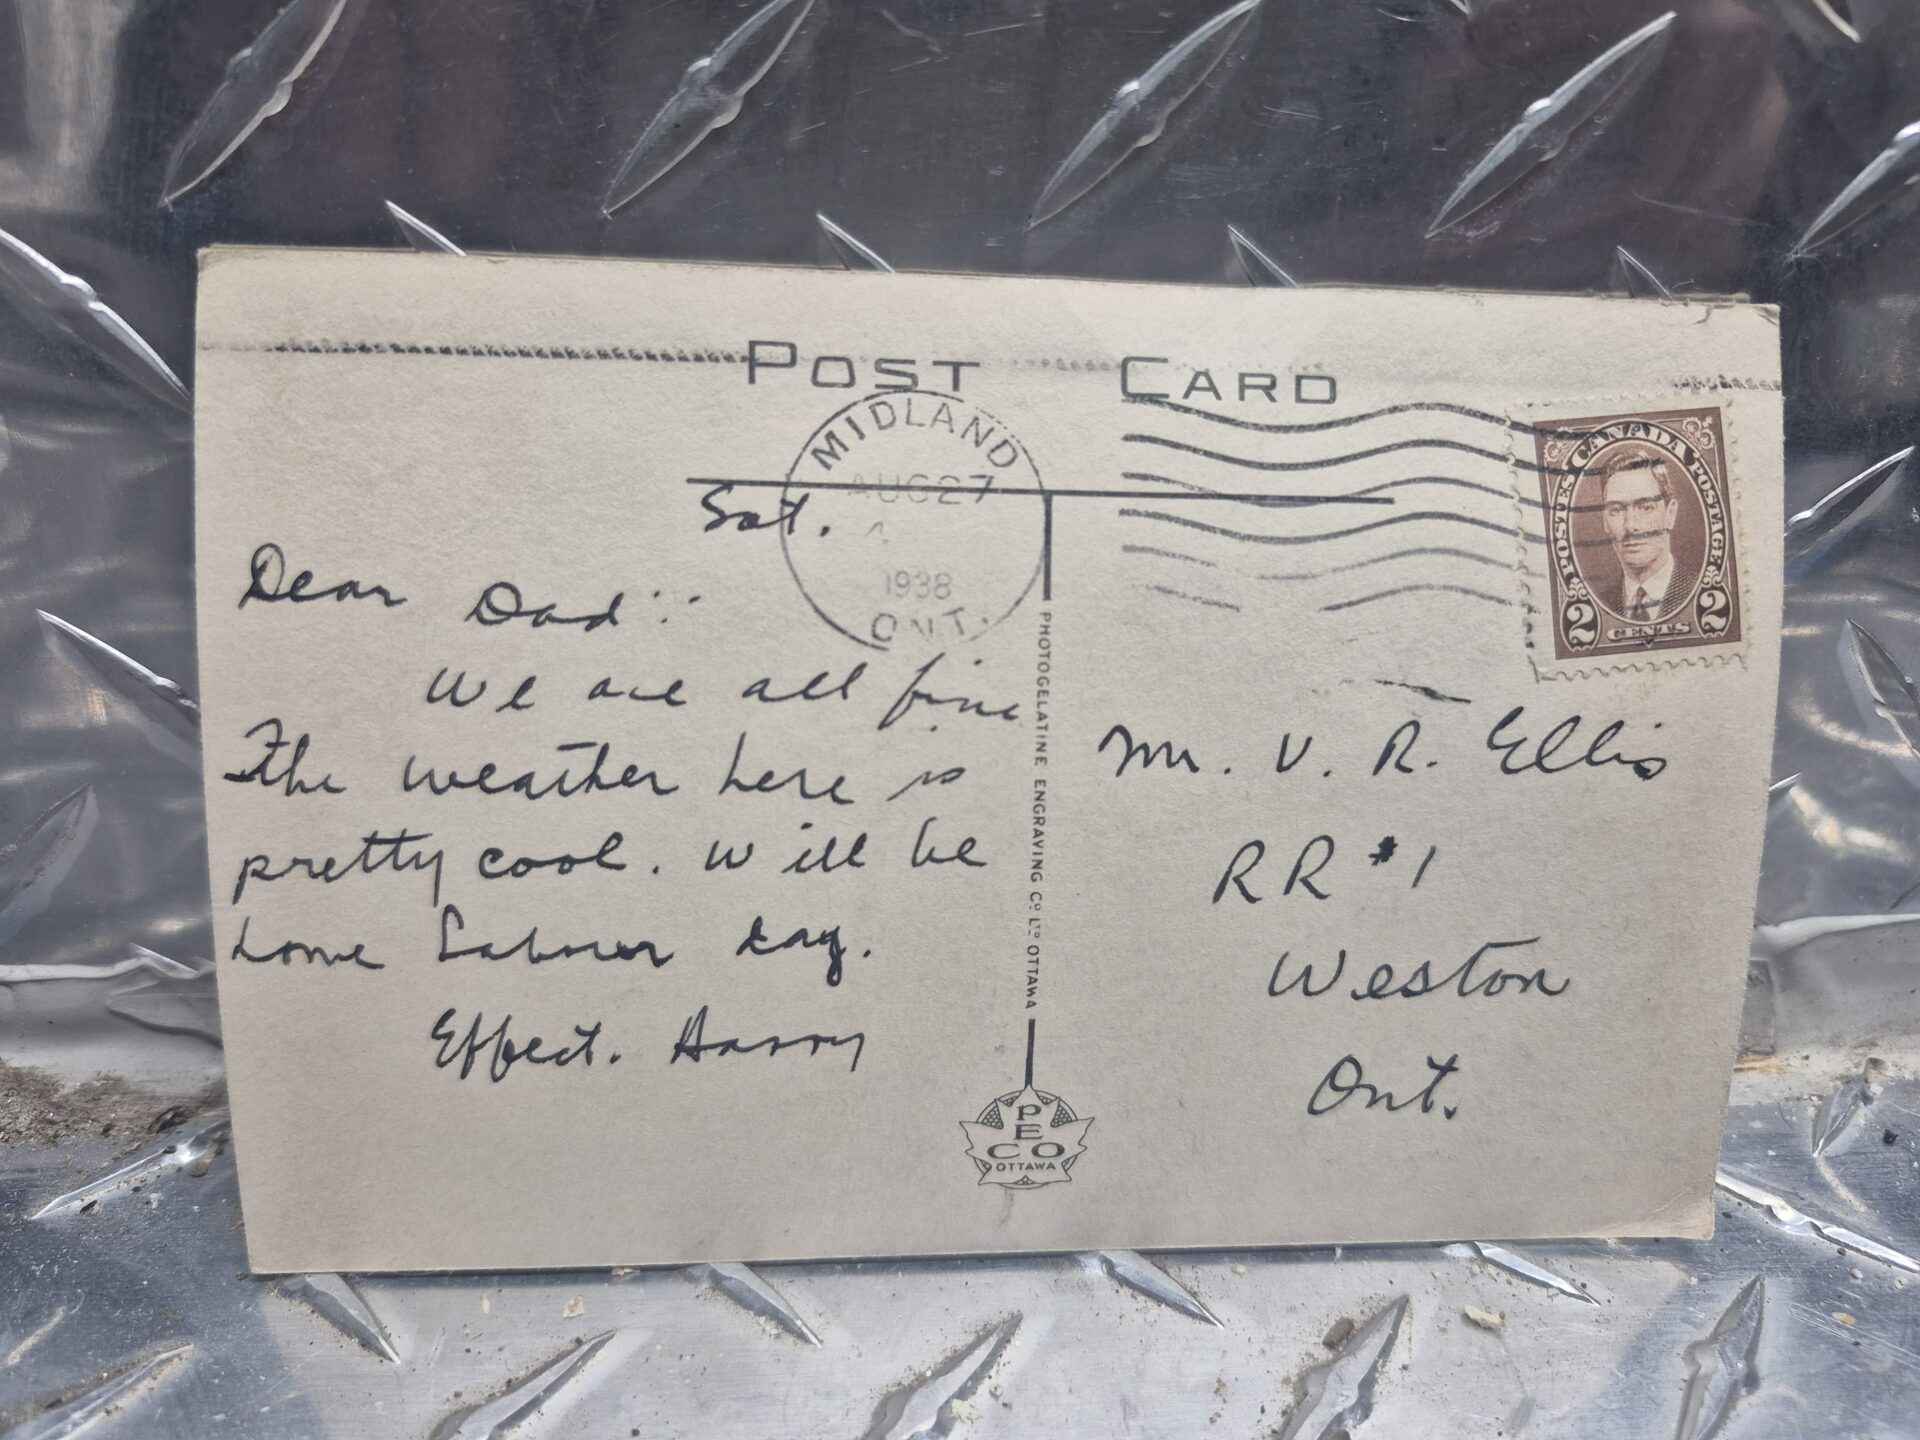 POST CARD
MIDLAND
AUG 27
1938
ONT.
CANADA
POSTES POSTAGE
2 CENTS 2
Sat.
Dear Dad:-
We are all fine
The weather here is
pretty cool. Will be
home Labour day.
Effect. Harry
PHOTOGELATINE ENGRAVING CO. LTD. OTTAWA
PECO
OTTAWA
Mr. V. R. Ellis
RR #1
Weston
Ont.